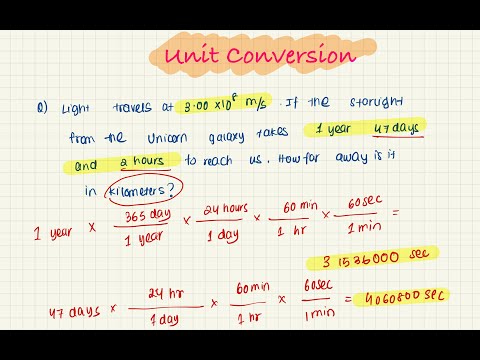 Unit Conversion
Q) Light travels at 3.00 x10⁸ m/s. If the starlight
from the Unicorn galaxy takes 1 year 47 days
and 2 hours to reach us. How far away is it
in kilometers?
1 year x 365 day / 1 year x 24 hours / 1 day x 60 min / 1 hr x 60 sec / 1 min =
31536000 sec
47 days x 24 hr / 1 day x 60 min / 1 hr x 60 sec / 1 min = 4060800 sec